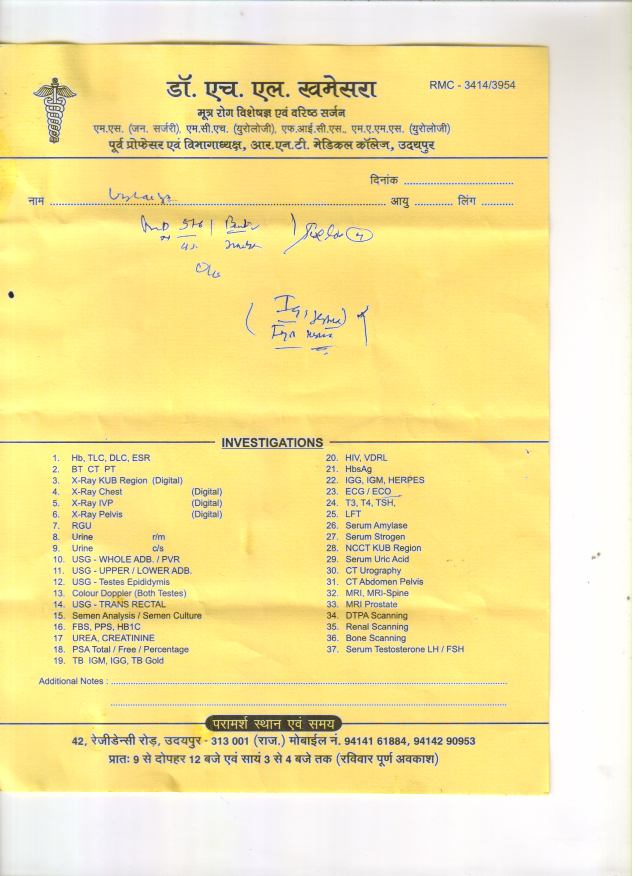 डॉ. एच. एल. खमेसरा
RMC - 3414/3954
मूत्र रोग विशेषज्ञ एवं वरिष्ठ सर्जन
एम.एस. (जन. सर्जरी), एम.सी.एच. (युरोलोजी), एफ.आई.सी.एस., एम.ए.एम.एस. (युरोलोजी)
पूर्व प्रोफेसर एवं विभागाध्यक्ष, आर.एन.टी. मेडिकल कॉलेज, उदयपुर
दिनांक
नाम आयु लिंग
INVESTIGATIONS
1. Hb, TLC, DLC, ESR
2. BT CT PT
3. X-Ray KUB Region (Digital)
4. X-Ray Chest (Digital)
5. X-Ray IVP (Digital)
6. X-Ray Pelvis (Digital)
7. RGU
8. Urine r/m
9. Urine c/s
10. USG - WHOLE ADB. / PVR
11. USG - UPPER / LOWER ADB.
12. USG - Testes Epididymis
13. Colour Doppler (Both Testes)
14. USG - TRANS RECTAL
15. Semen Analysis / Semen Culture
16. FBS, PPS, HB1C
17 UREA, CREATININE
18. PSA Total / Free / Percentage
19. TB IGM, IGG, TB Gold
20. HIV, VDRL
21. HbsAg
22. IGG, IGM, HERPES
23. ECG / ECO
24. T3, T4, TSH,
25. LFT
26. Serum Amylase
27. Serum Strogen
28. NCCT KUB Region
29. Serum Uric Acid
30. CT Urography
31. CT Abdomen Pelvis
32. MRI, MRI-Spine
33. MRI Prostate
34. DTPA Scanning
35. Renal Scanning
36. Bone Scanning
37. Serum Testosterone LH / FSH
Additional Notes :
परामर्श स्थान एवं समय
42, रेजीडेन्सी रोड़, उदयपुर - 313 001 (राज.) मोबाईल नं. 94141 61884, 94142 90953
प्रातः 9 से दोपहर 12 बजे एवं सायं 3 से 4 बजे तक (रविवार पूर्ण अवकाश)